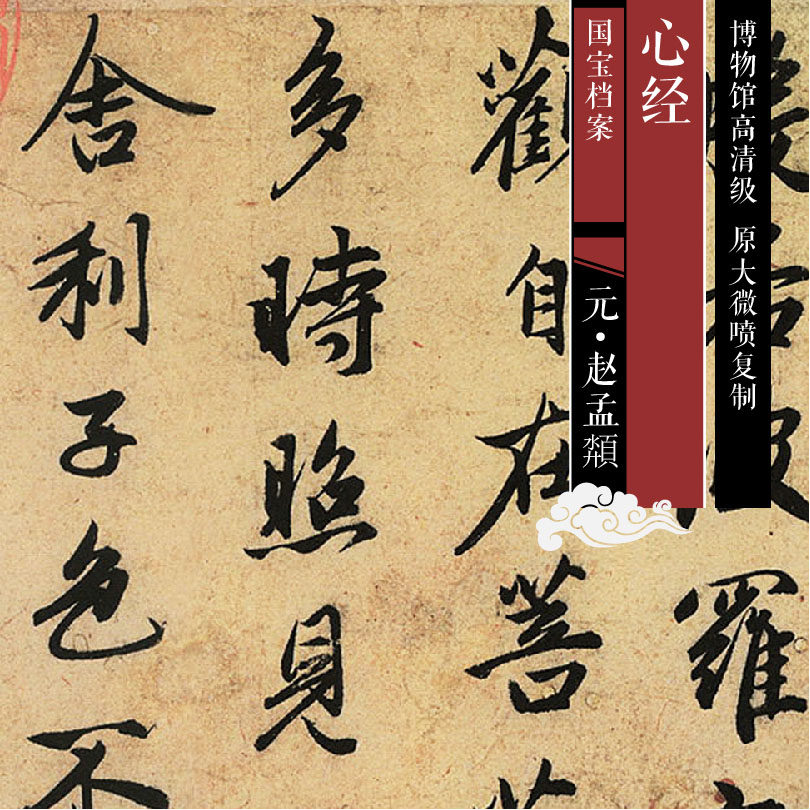 博物馆高清级 原大微喷复制
心经
国宝档案
元·赵孟頫
羅
觀自在菩
多時照見
舍利子色不